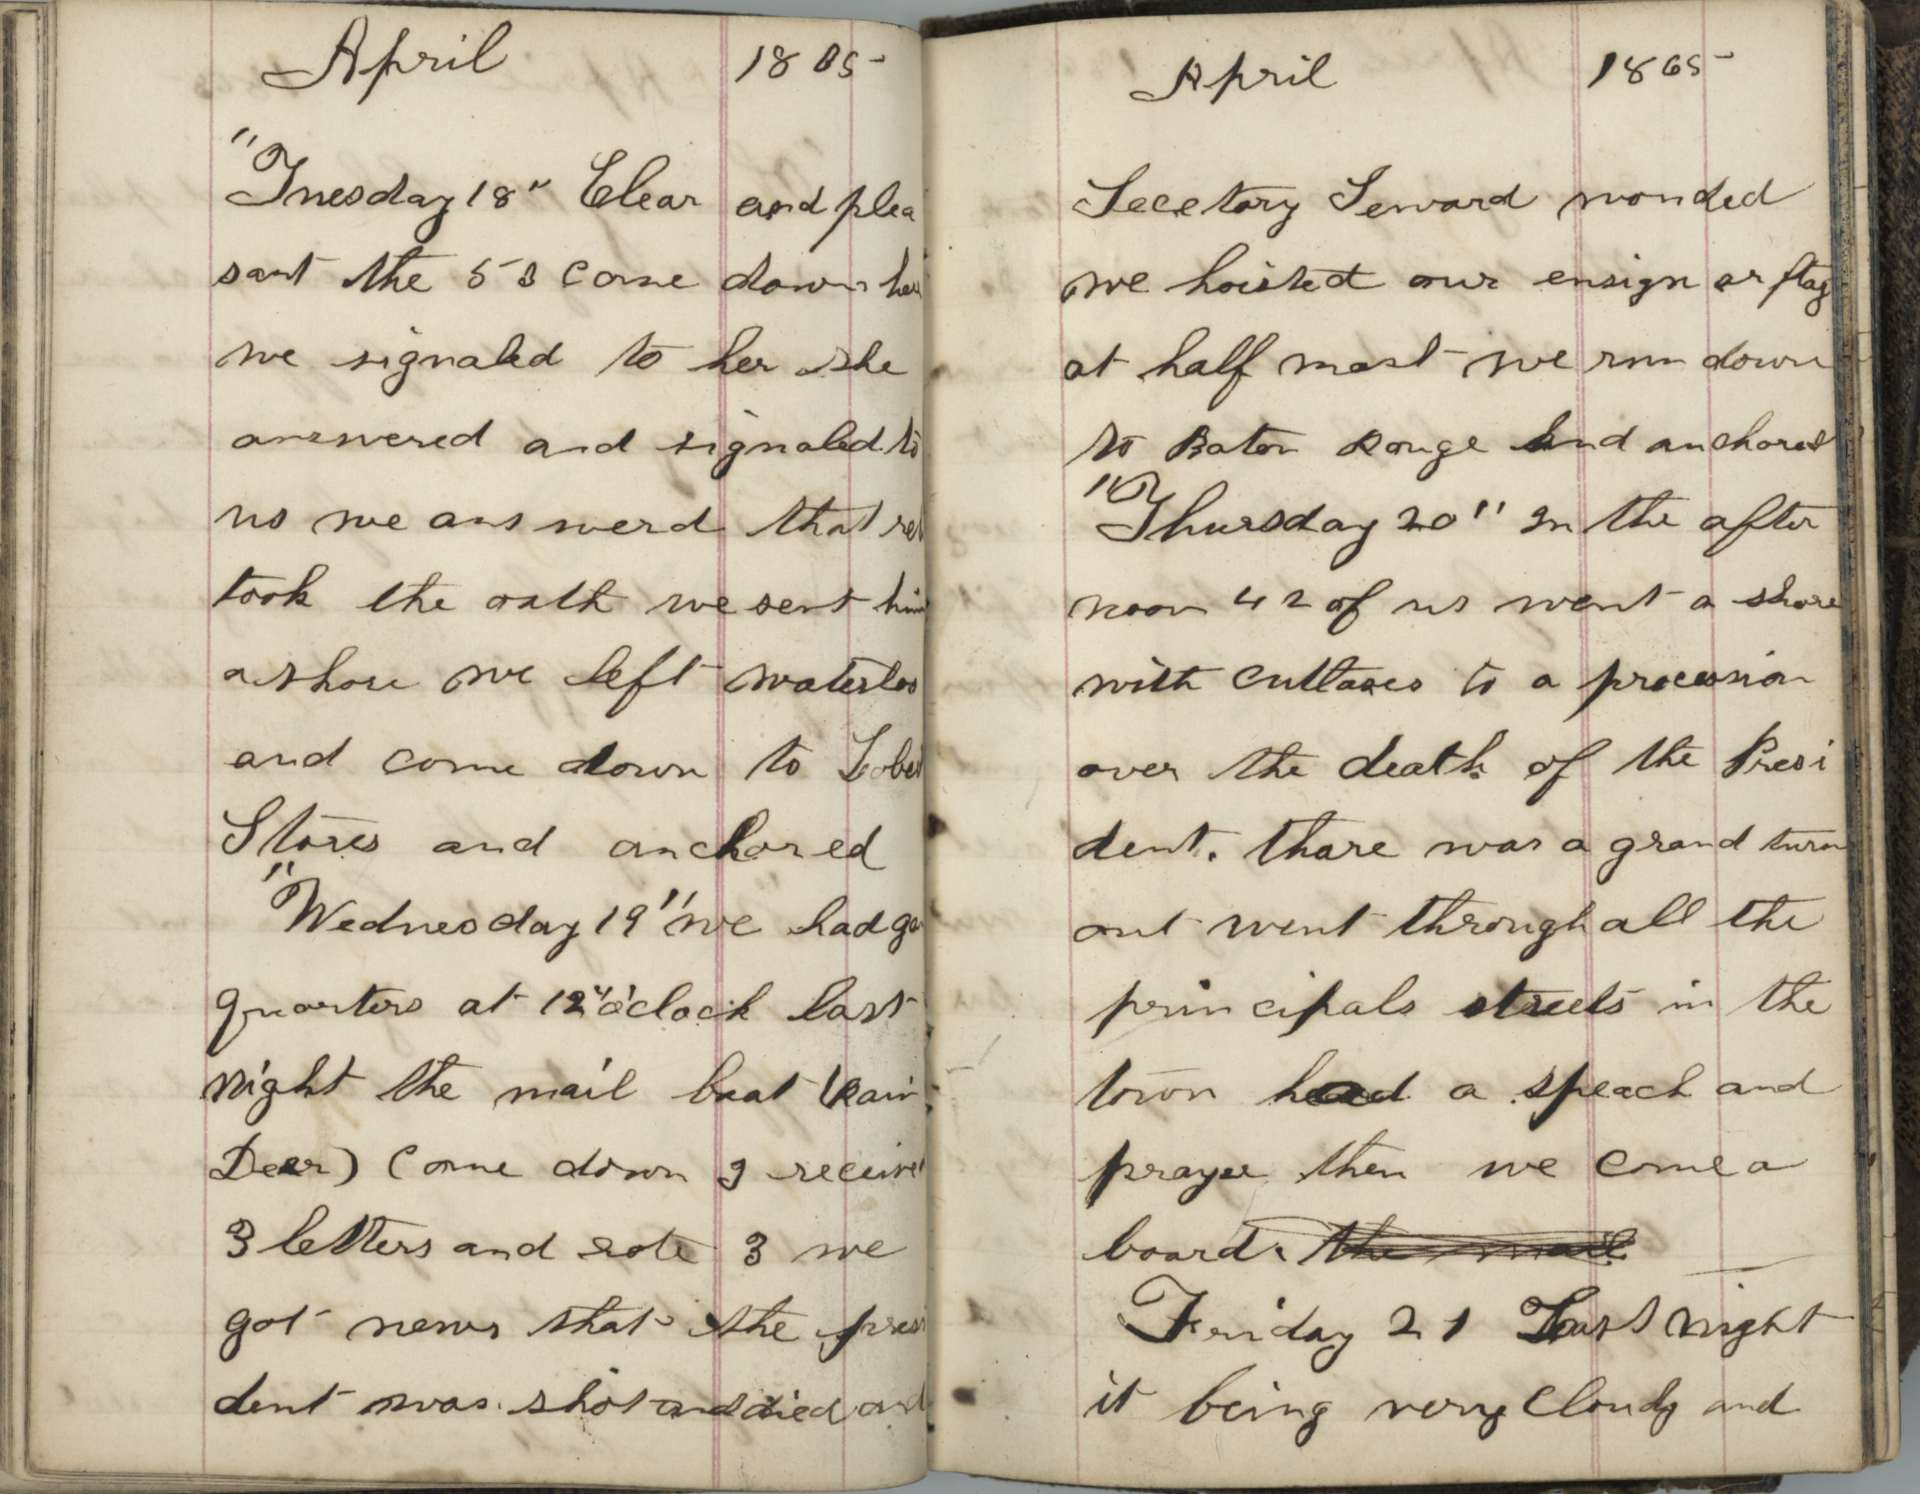 April 1865
"Tuesday 18" Clear and plea
sant the 53 come down her
we signaled to her she
answered and signaled to
us we answerd that reb
took the oath we sent him
ashore we left waterloo
and come down to
Stores and anchored
"Wednesday 19" we had ge
quarters at 12 "o'clock last
night the mail boat (Rain
Deer) Come down I receive
3 letters and rote 3 we
got news that the presi
dent was shot and died and
April 1865
Secetory Seward wonded
we hoisted our ensign or flag
at half mast we run down
to Baton Rouge and anchored
"Thursday 20" In the after
noon 42 of us went a shore
with cutlases to a procession
over the death of the Presi
dent. thare was a grand turn
out went through all the
principals streets in the
town had a speach and
prayer then we come a
board. the mail
Friday 21 Last night
it being very Cloudy and